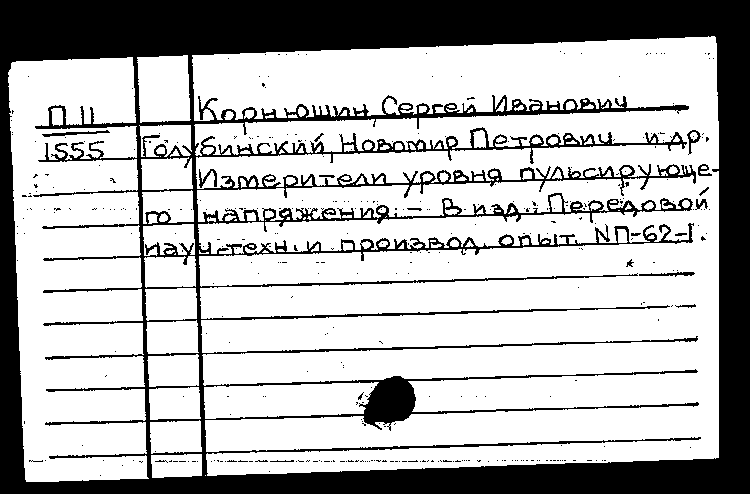 П II Корнюшин, Сергей Иванович
1555 Голубинский, Новомир Петрович и др.
Измерители уровня пульсирующе-
го напряжения. - В изд.: Передовой
науч.-техн. и производ. опыт. №П-62-1.